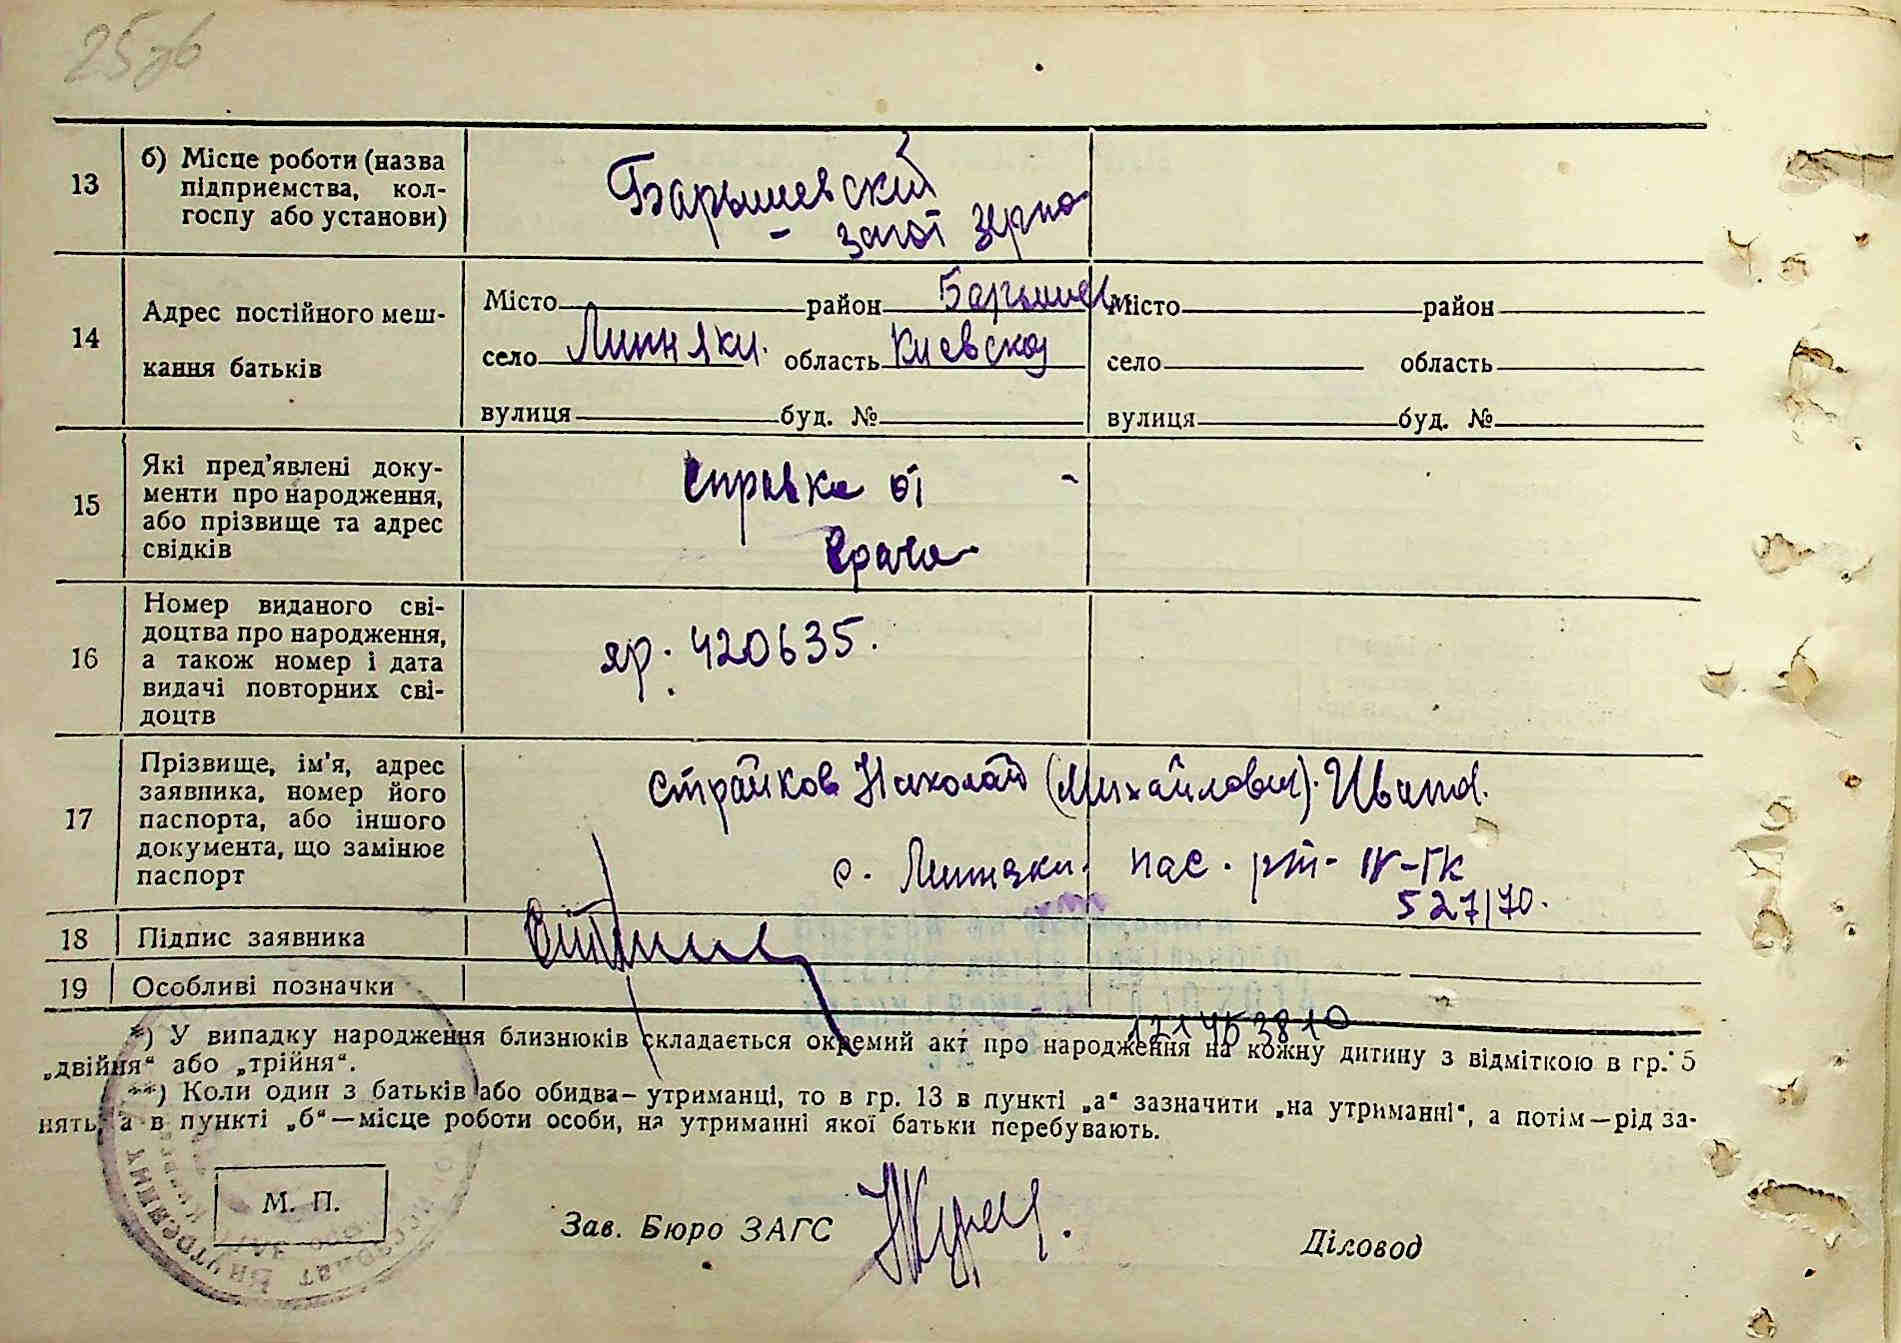 25 зв
13 б) Місце роботи (назва
підприємства, кол-
госпу або установи)
Барышевский
загот зерно
14 Адрес постійного меш-
кання батьків
Місто район Барышев Місто район
село Липняки. область Киевской село область
вулиця буд. № вулиця буд. №
15 Які пред'явлені доку-
менти про народження,
або прізвище та адрес
свідків
Справка от
врача
16 Номер виданого сві-
доцтва про народження,
а також номер і дата
видачі повторних сві-
доцтв
яр. 420635.
17 Прізвище, ім'я, адрес
заявника, номер його
паспорта, або іншого
документа, що замінює
паспорт
Страйков Николай (Михайлович). Иванов.
с. Липняки. пас. IV-ГК
527170.
18 Підпис заявника
19 Особливі позначки
*) У випадку народження близнюків складається окремий акт про народження на кожну дитину з відміткою в гр. 5
„двійня“ або „трійня“.
**) Коли один з батьків або обидва—утриманці, то в гр. 13 в пункті „а“ зазначити „на утриманні“, а потім—рід за-
нять, а в пункті „б“—місце роботи особи, на утриманні якої батьки перебувають.
М. П.
Зав. Бюро ЗАГС
Діловод